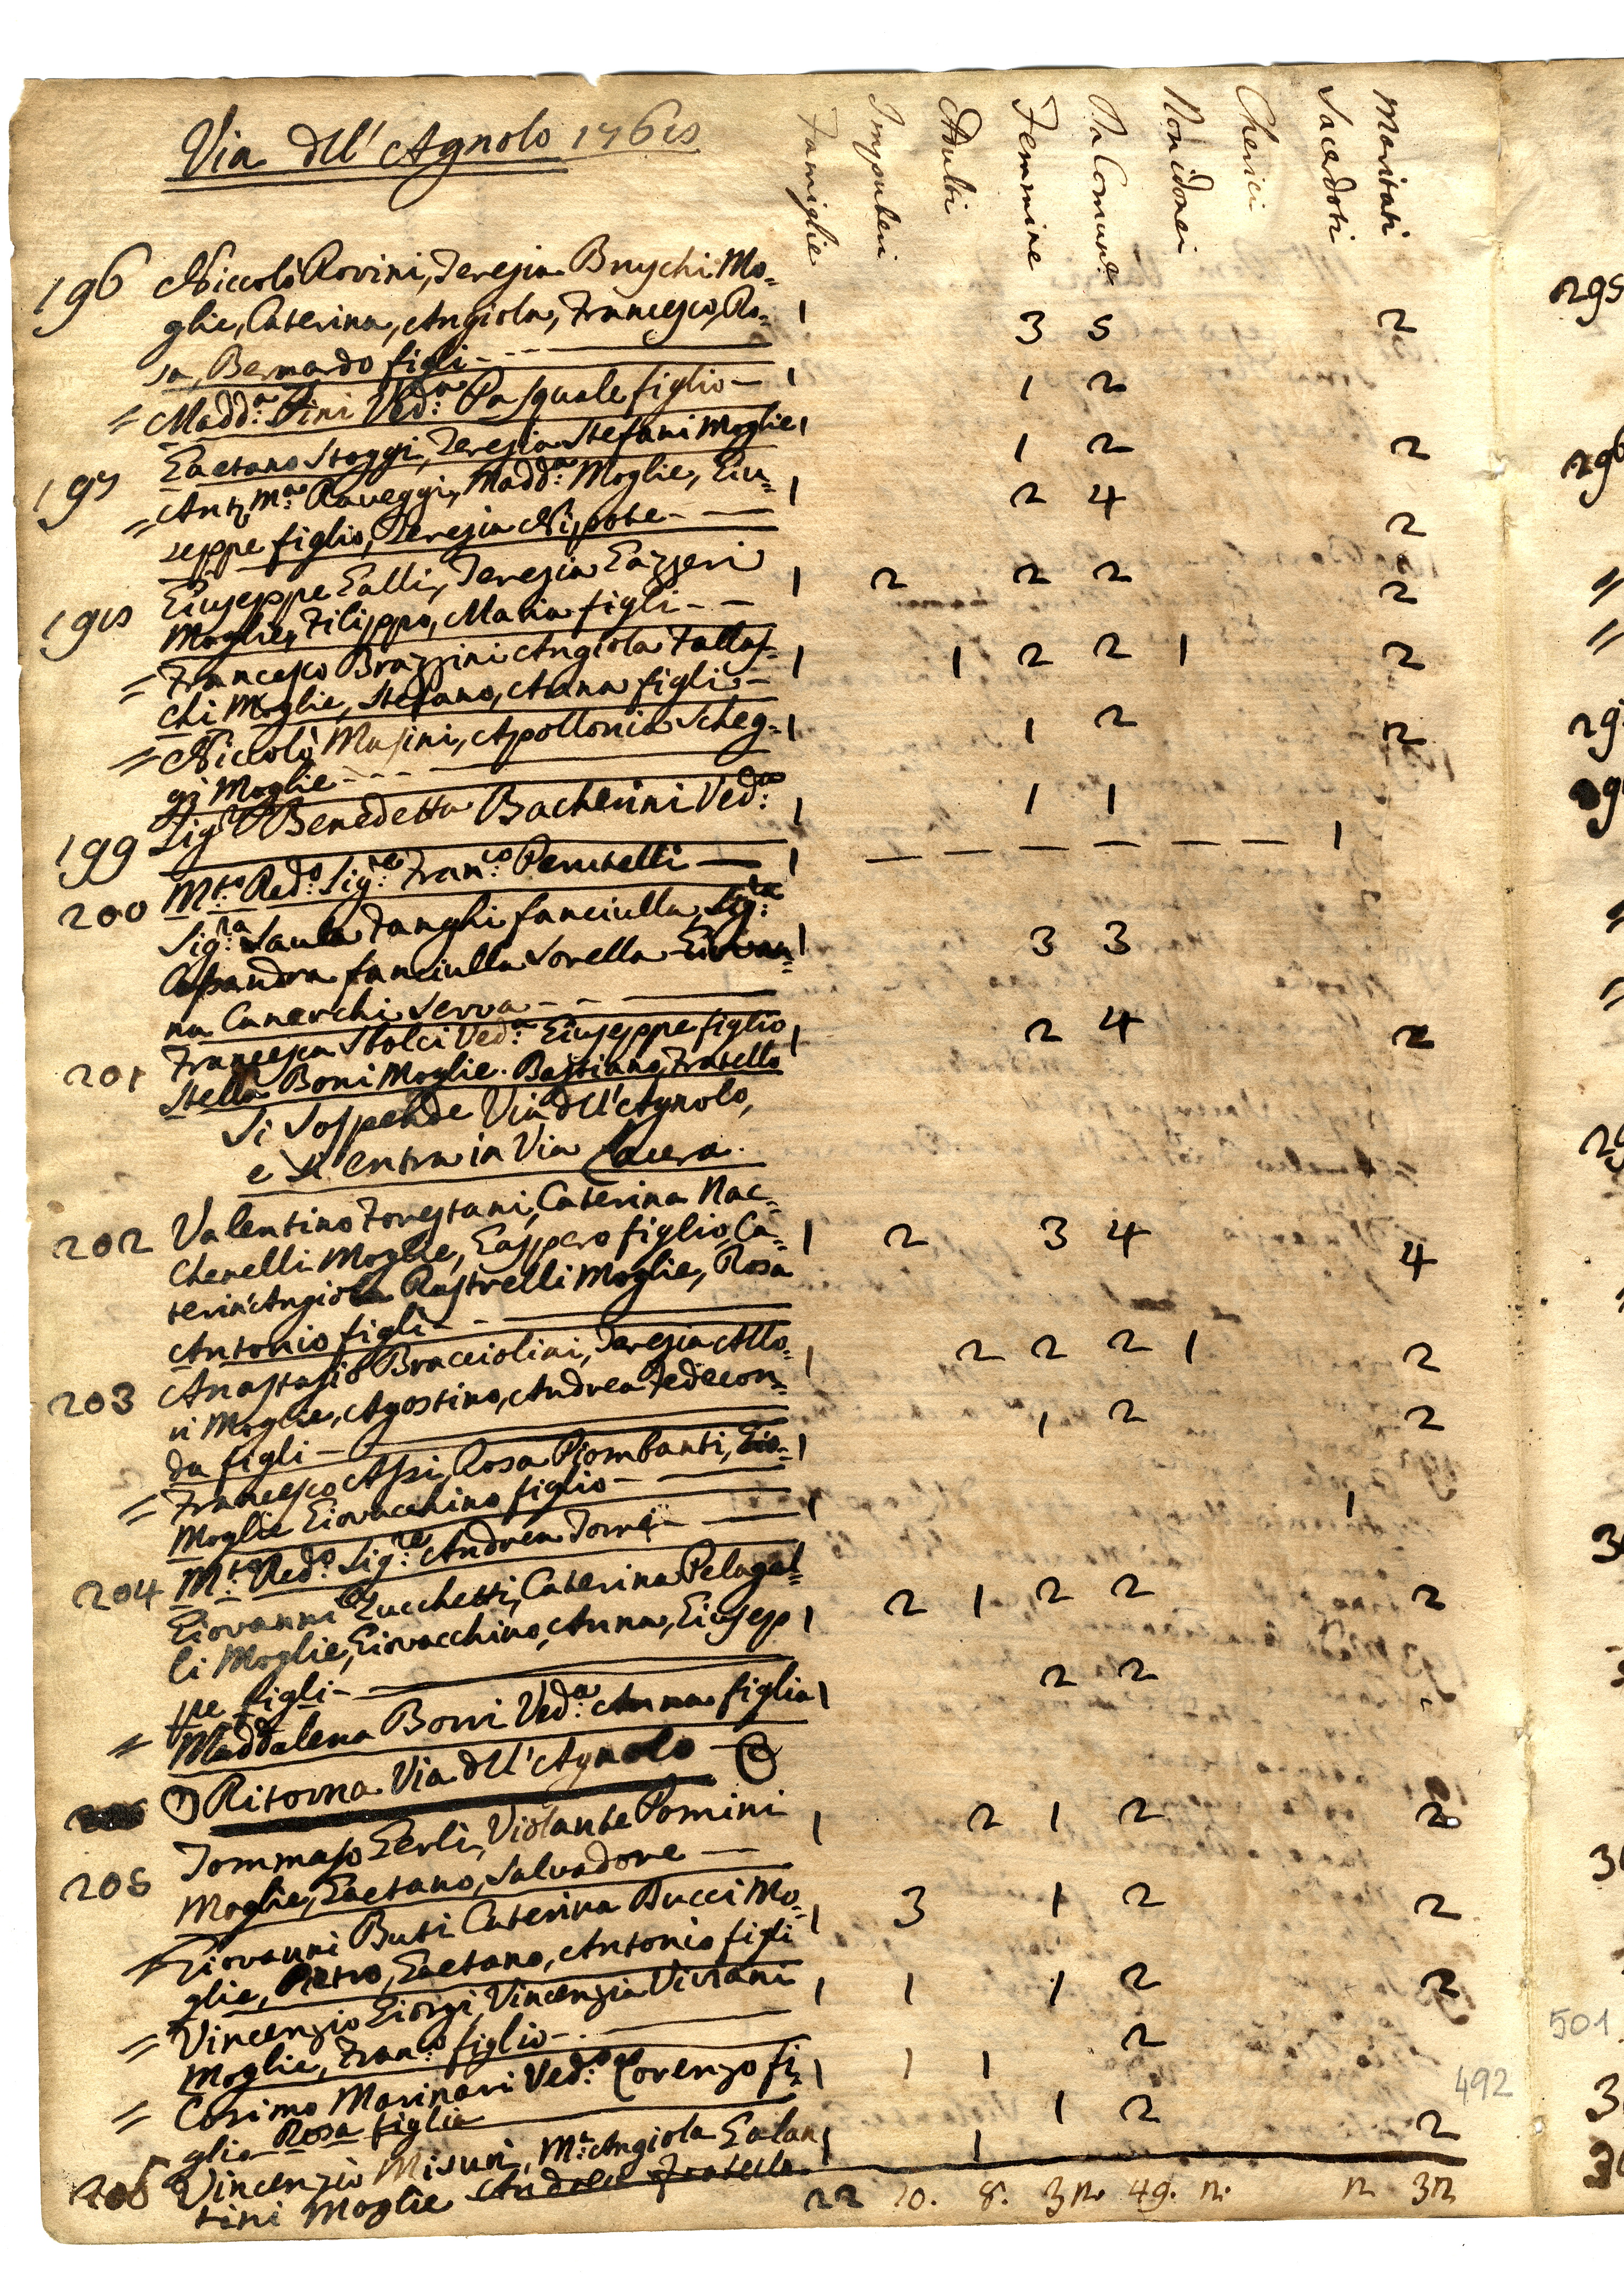 Via dell' Agnolo 1768
Famiglie
Impuberi
Adulti
Femmine
Da Comun.e
Non idonei
Cherici
Sacerdoti
Maritati
196 Niccolò Rovini, Teresia Bruschi Mo=
glie, Caterina, Angiola, Francesco, Ro= 1 3 5 2
sa, Bernardo figli
= Madd.a Pini Ved.a Pasquale figlio 1 1 2
197 Gaetano Stoggi, Teresia Stefani Moglie 1 1 2 2
= Ant. M.a Raveggi, Madd.a Moglie, Giu= 1 2 4 2
seppe figlio, Teresia Nipote
198 Giuseppe Galli, Teresia Gazzeri 1 2 2 2 2
Moglie, Filippo, Maria figli
= Francesco Brazzini Angiola Fallas= 1 1 2 2 1 2
chi Moglie, Stefano, Anna figli
= Niccolò Masini, Apollonia Scheg= 1 1 2 2
gi Moglie
199 Sig.ra Benedetta Bacherini Ved.a 1 1 1
200 M.to Red.o Sig.re Fran.co Perutelli 1 1
Sig.ra Laula Fanghi fanciulla, Sig.ra
Casandra fanciulla Sorella Giovan= 1 3 3
na Canerchi Serva
201 Francesca Stolci Ved.a Giuseppe figlio 1 2 4 2
Stella Boni Moglie. Bastiano Fratello
Si Sospende Via dell' Agnolo,
e Si entra in Via Lacera.
202 Valentino Forestani, Caterina Nac=
chenelli Moglie, Gasppero figlio, Ca= 1 2 3 4 4
terin' Angiola Rastrelli Moglie, Rosa
Antonio figli
203 Anastasio Bracciolini, Teresia Allo= 1 2 2 2 1 2
ri Moglie, Agostino, Andrea Fedecon=
da figli
= Francesco Assi, Rosa Piombanti, Gio= 1 1 2 2
Moglie Giovacchino figlio
204 M.to Red.o Sig.re Andrea Torre 1 1
Giovanni Zucchetti, Caterina Pelagal=
li Moglie, Giovacchino, Anna, Giusep 1 2 1 2 2 2
pe figli
= Maddalena Borri Ved.a Anna figlia 1 2 2
Ritorna Via dell' Agnolo
205 Tommaso Gerli, Violante Pomini 1 2 1 2 2
Moglie, Gaetano, Salvadore
= Giovanni Buti Caterina Bucci Mo= 1 3 1 2 2
glie, Pietro, Gaetano, Antonio figli
= Vincenzio Giorgi Vincenzia Viviani 1 1 1 2 2
Moglie, Fran.co figlio
= Cosimo Marinari Ved.o Lorenzo fi= 1 1 1 2
glio Rosa figlia
206 Vincenzio Misuri, M.a Angiola Galan 1 1 1 2 2
tini Moglie Andrea Fratello
22 10. 8. 32. 49. 2. 2 32
492
501